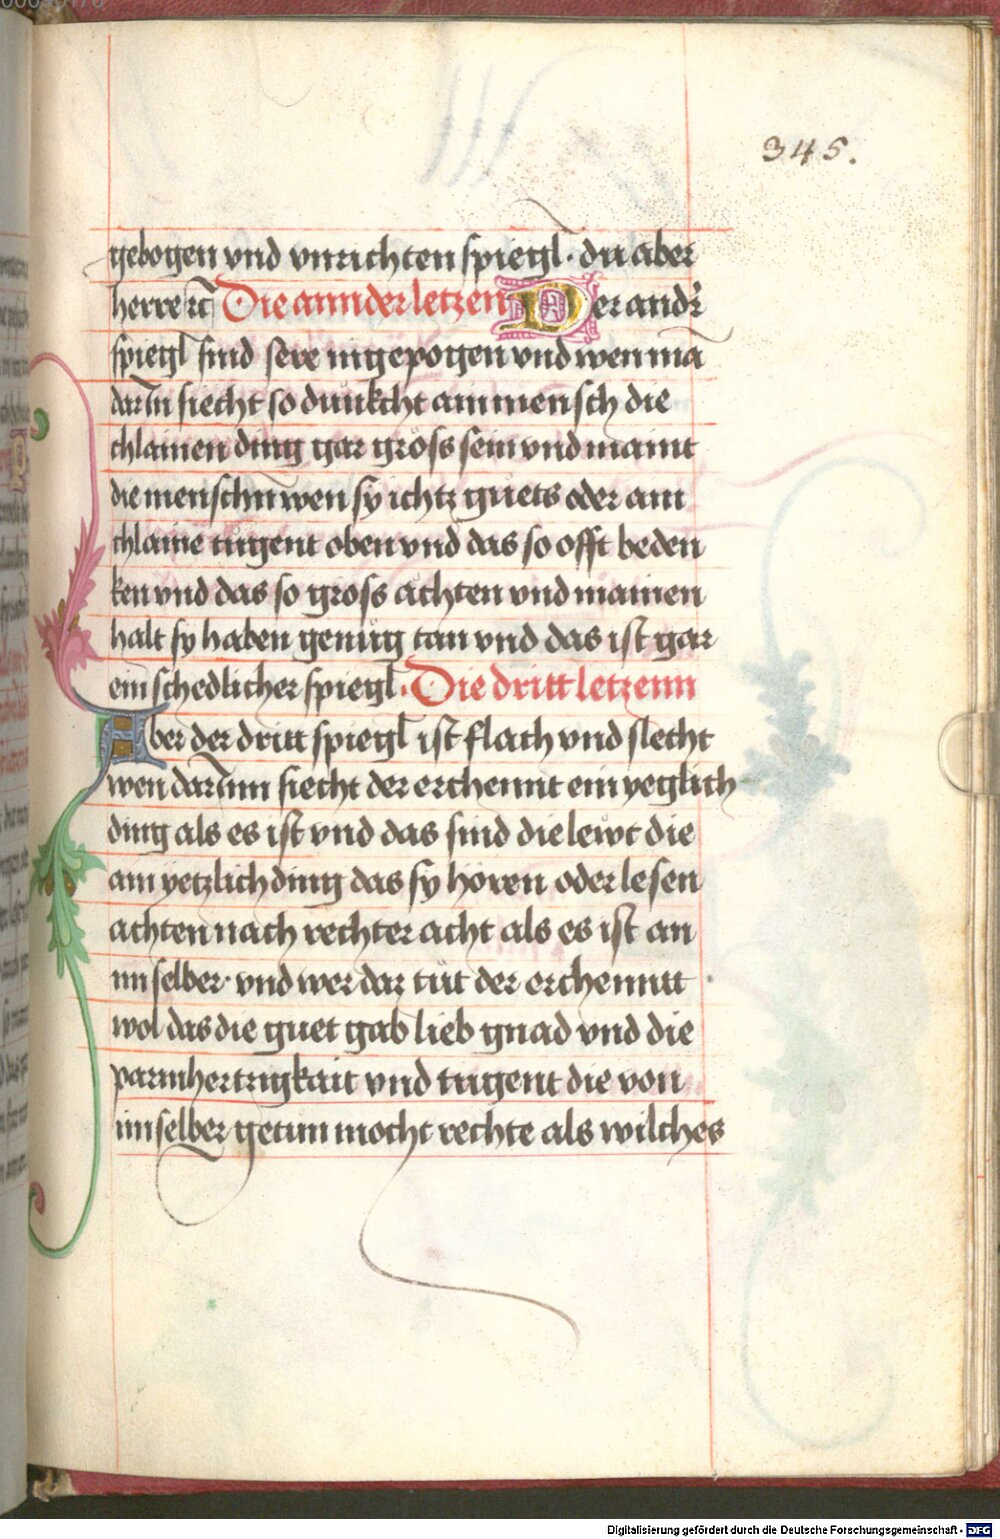 345.
gebogen vnd vnrichten spiegl · du aber
herre ꝛc Die annder letzen Der andr̄
spiegl sind sere ingepogen vnd wen mā
darin siecht so dunkcht ain mensch die
chlainen ding gar gröss sein vnd maint
die menschn wen sy ichtz guets oder ain
chlaine tugent oben vnd das so offt beden
ken vnd das so gross achten vnd mainen
halt sy haben genůg tan vnd das ist gar
ein schedlicher spiegl · Die dritt letzenn
Aber der dritt spiegl ist flach vnd slecht
wen darinn siecht der erchennt ein yeglich
ding als es ist vnd das sind die lewt die
ain yetzlich ding das sy hören oder lesen
achten nach rechter acht als es ist an
im selber · vnd wer daz tüt der erchenntt
wol das die guet gab lieb gnad vnd die
parmhertzigkait vnd tugent die von
im selber getun mocht rechte als wilches
Digitalisierung gefördert durch die Deutsche Forschungsgemeinschaft - DFG